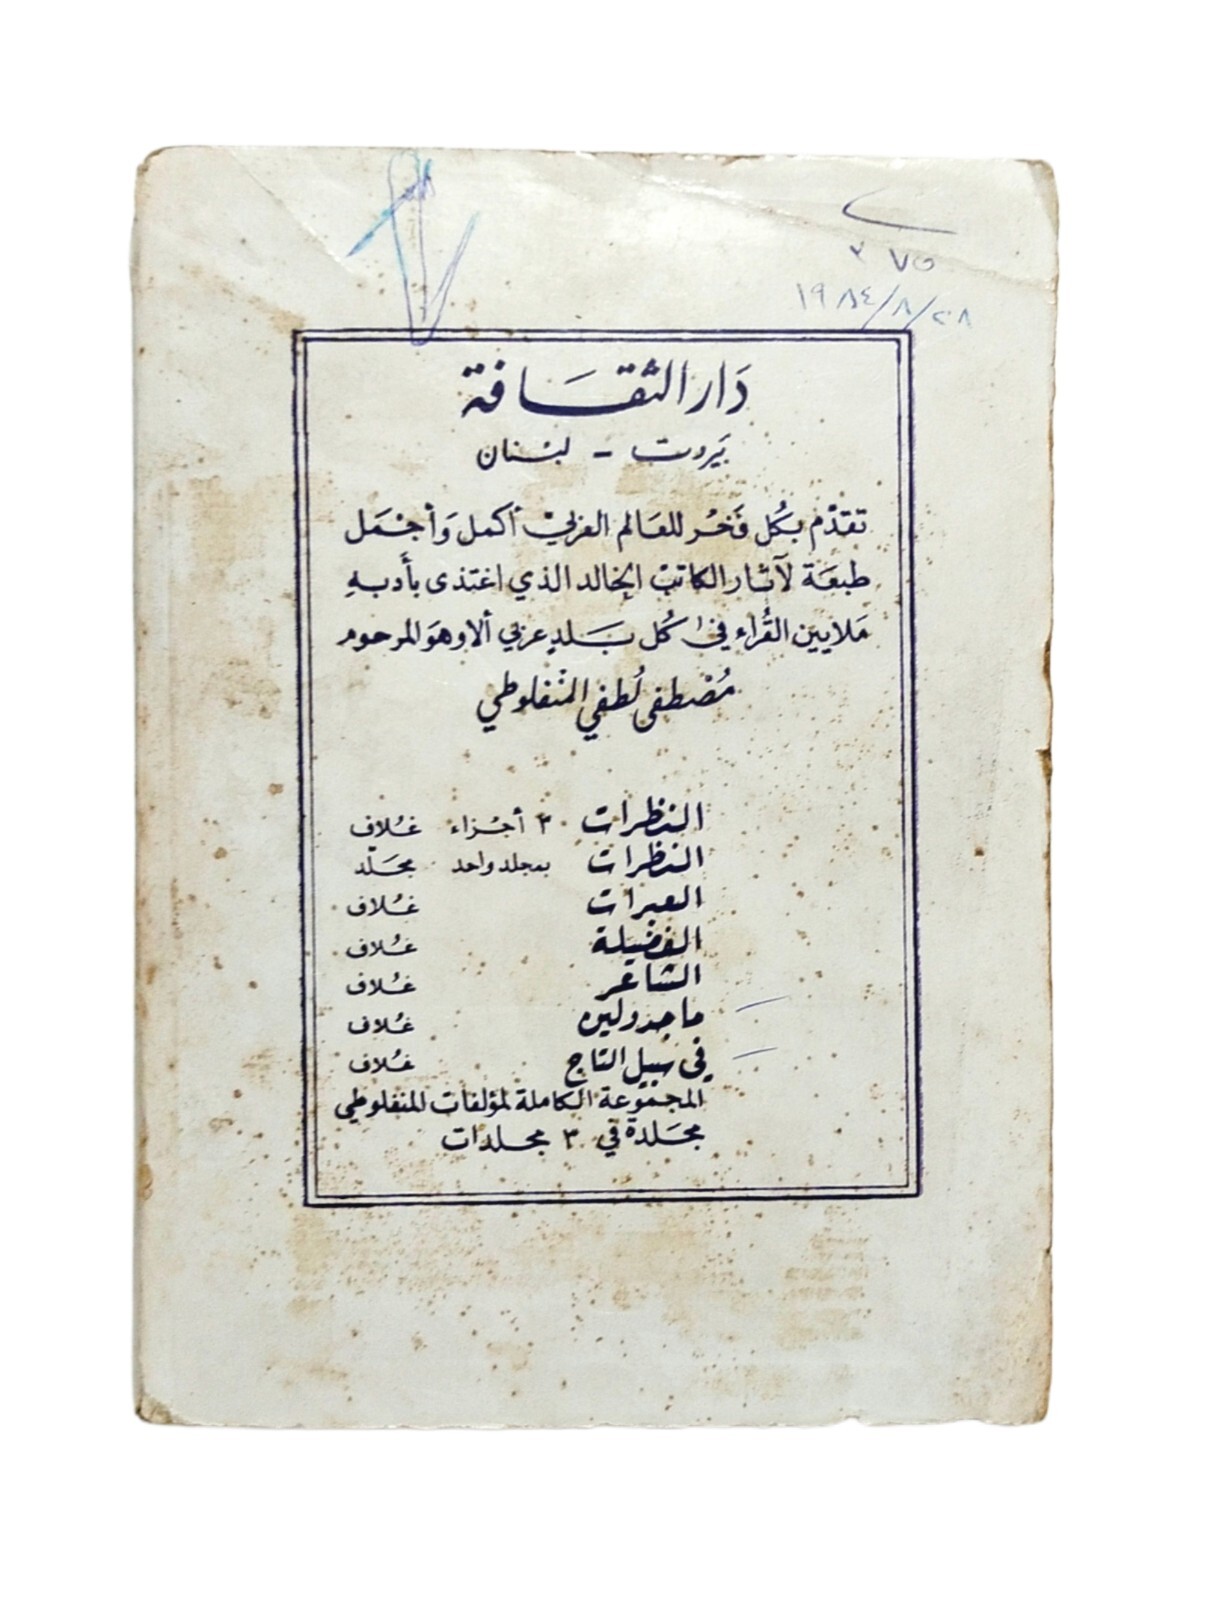 ١٩٨٤/٨/٢٨
دَار الثقَافة
بَيروت - لبْنان
تقدّم بكُل فَخْر للعَالم العَربيْ أكمل وَأجْمَل
طبعَة لآثار الكاتبْ الخالد الذي اغتذى بأدبهِ
مَلايين القُراء فيْ كُل بَلدٍ عربي ألا وهوَ المرحوم
مُصْطفى لُطفي المنْفلوطي
النظرات ٣ أجْزاء غُلاف
النظرات بمجلد واحد مجَلّد
العبرات غُلاف
الفضيلة غُلاف
الشاعر غُلاف
ماجدولين غُلاف
في سبيل التاج غُلاف
المجموعَة الكاملة لمؤلفات المنفلوطي
مجَلدة في ٣ مجلدات